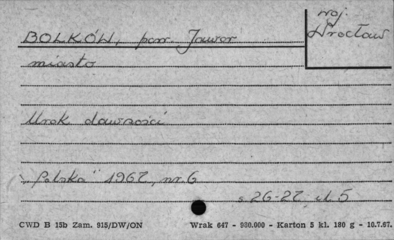 BOLKÓW, pow. Jawor
woj.
Wrocław
miasto
Urok dawności
"Polska" 1967, nr. 6
s. 26-27, il. 5
CWD B 15b Zam. 915/DW/ON Wrak 647 - 980.000 - Karton 5 kl. 180 g - 16.7.67.